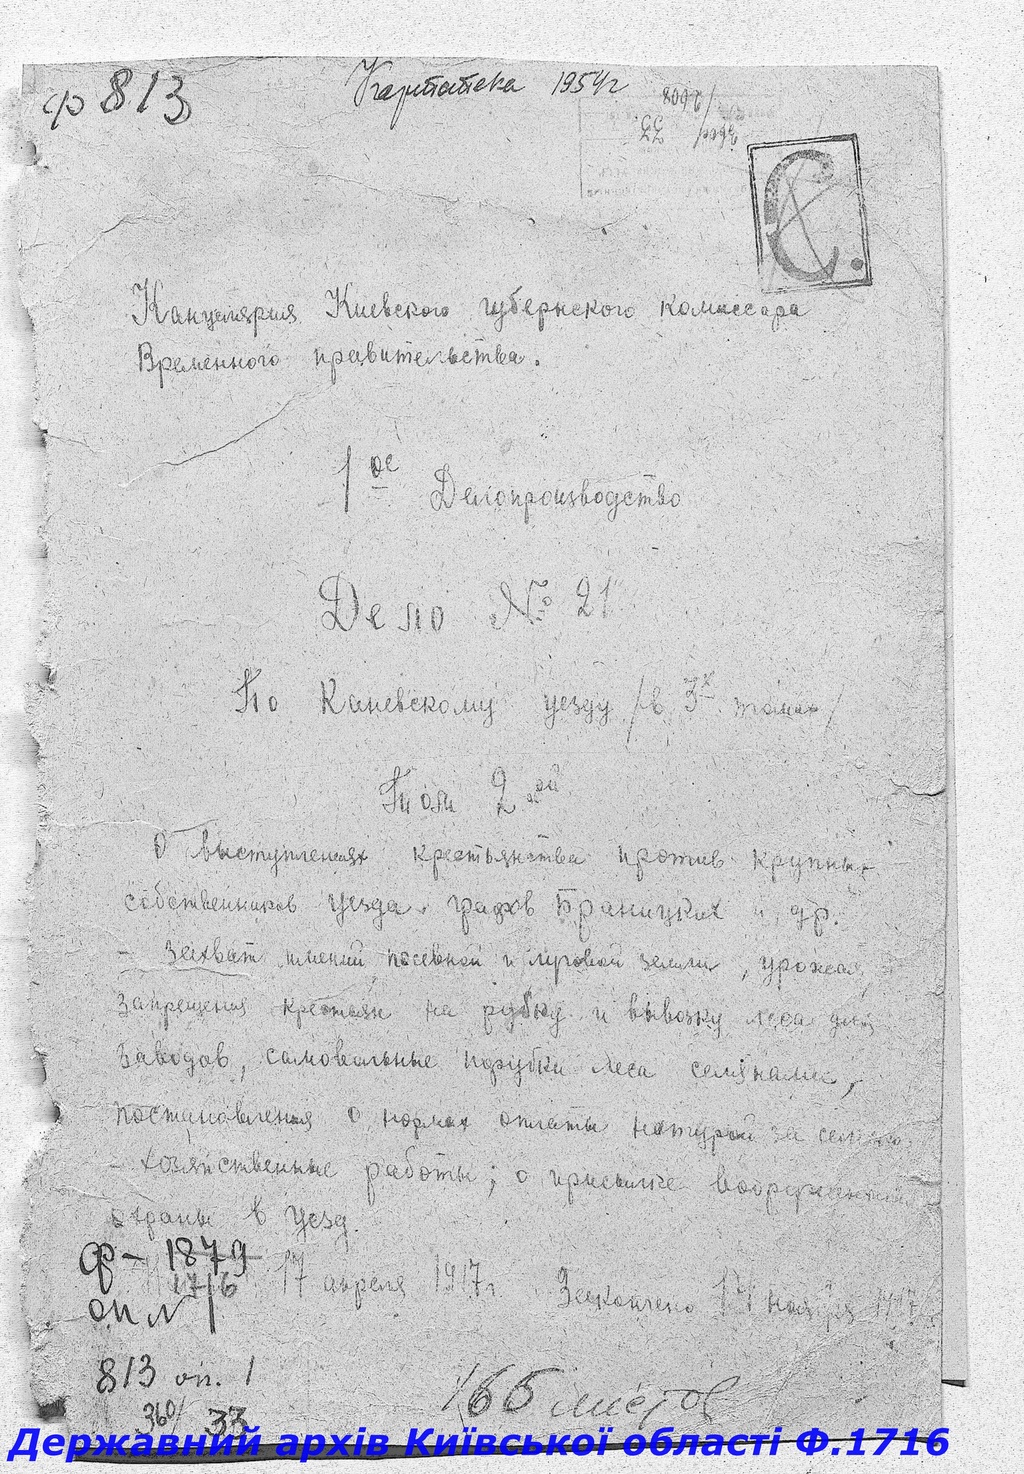 ф 813
Картатека 1954г
С.
Канцелярия Киевского губернского комиссара
Временного правительства.
1ое Делопроизводство
Дело № 21
По Каневскому уезду /в 3х томах/
Том 2ой
О выступлениях крестьянства против крупных
собственников уезда, графов Браницких и др.
- Захват имений посевной и луговой земли, урожая,
запрещения крестьян на рубку и вывозку леса для
заводов, самовольные порубки леса селянами,
постановления о нормах оплаты натурой за сельско-
- хозяйственные работы; о присылке вооруженной
охраны в уезд.
ф- 1879
1716
17 апреля 1917г. Закончено ноября 1917
оп № 1
813 оп. 1
360/ 33
165 листов
Державний архів Київської області Ф.1716